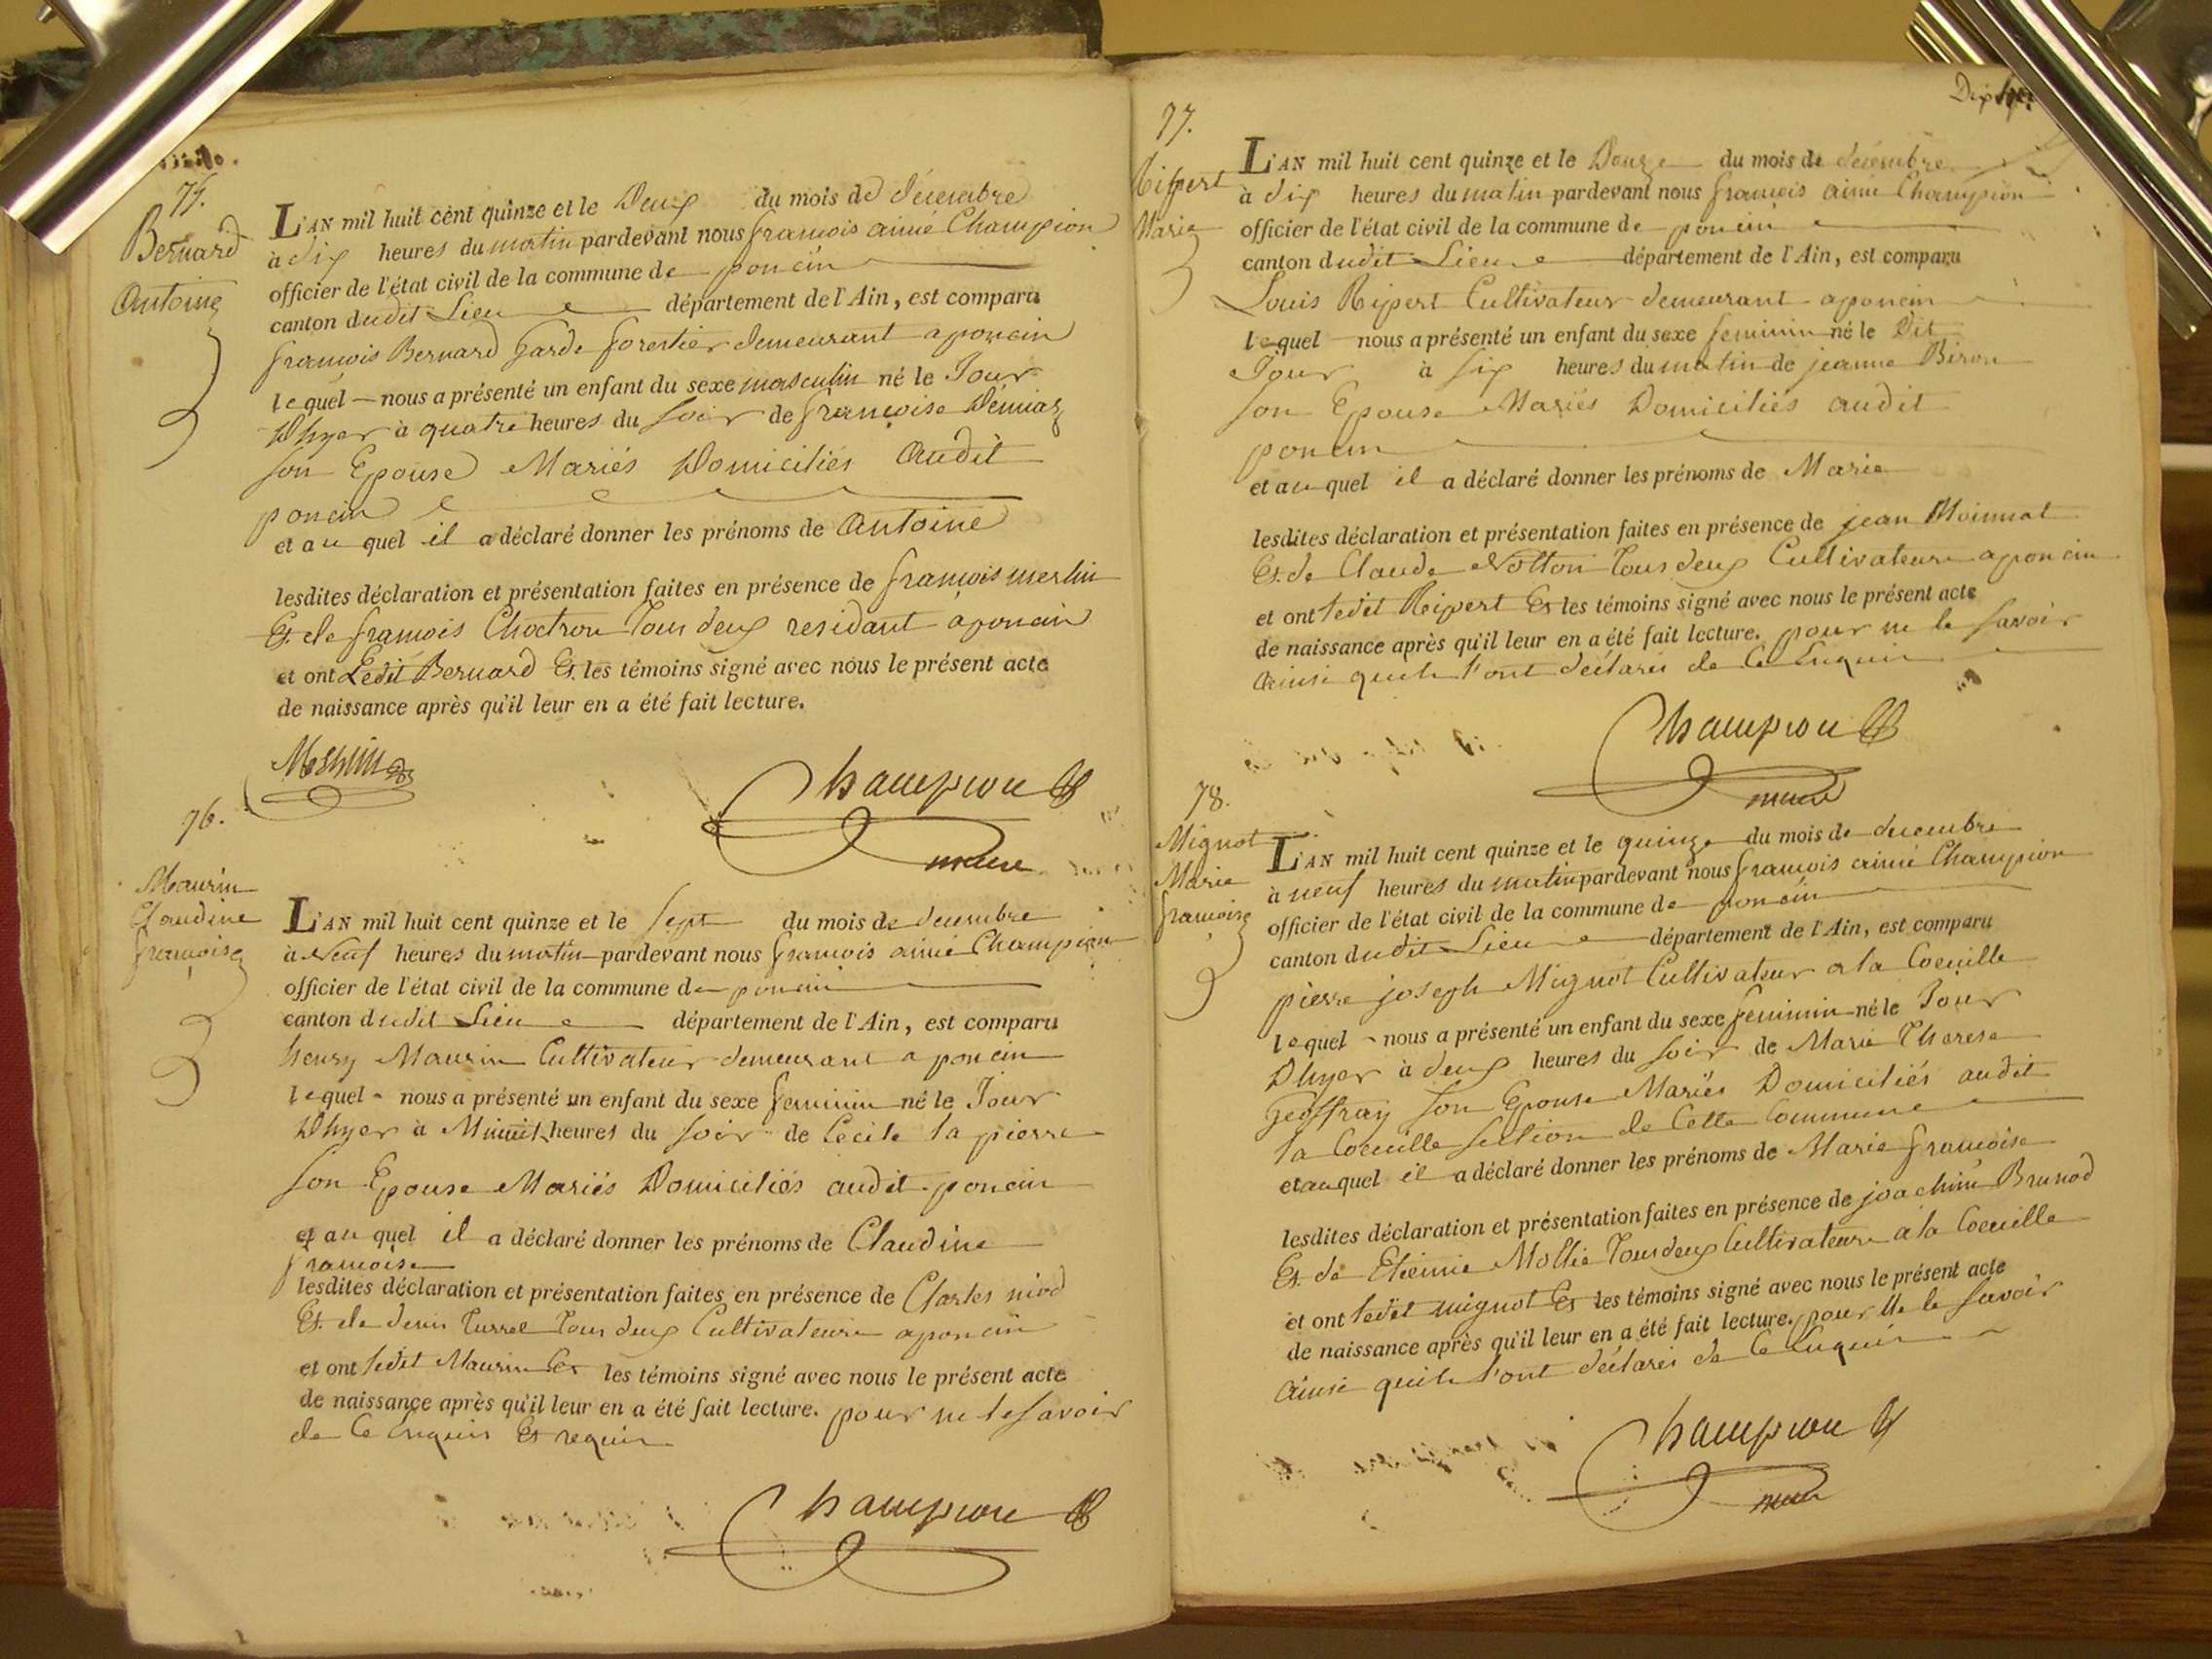 75.
Bernard
Antoine
L'AN mil huit cent quinze et le Deux du mois de décembre
à dix heures du matin pardevant nous françois aimé Champion
officier de l'état civil de la commune de poncin
canton dudit Lieu département de l'Ain, est comparu
françois Bernard Garde forestier demeurant a poncin
lequel nous a présenté un enfant du sexe masculin né le Jour
Dhyer à quatre heures du soir de françoise
son Epouse Mariés Domiciliés audit
poncin
et au quel il a déclaré donner les prénoms de Antoine
lesdites déclaration et présentation faites en présence de françois merlin
Et de françois Choctron Tous deux residant a poncin
et ont Ledit Bernard Et les témoins signé avec nous le présent acte
de naissance après qu'il leur en a été fait lecture.
Champion
maire
76.
Maurin
Claudine
françoise
L'AN mil huit cent quinze et le sept du mois de decembre
à Neuf heures du matin pardevant nous françois aimé Champion
officier de l'état civil de la commune de poncin
canton dudit Lieu département de l'Ain, est comparu
henry Maurin Cultivateur demeurant a poncin
lequel nous a présenté un enfant du sexe feminin né le Jour
Dhyer à Minuit heures du soir de Cecile la pierre
son Epouse Mariés Domiciliés audit poncin
et au quel il a déclaré donner les prénoms de Claudine
françoise
lesdites déclaration et présentation faites en présence de Charles niod
Et de denis Turrel Tous deux Cultivateurs a poncin
et ont ledit Maurin Et les témoins signé avec nous le présent acte
de naissance après qu'il leur en a été fait lecture. pour ne le savoir
de Ce Enquis Et requis
Champion
77.
Rippert
Marie
L'AN mil huit cent quinze et le Douze du mois de décembre
à dix heures du matin pardevant nous françois aimé Champion
officier de l'état civil de la commune de poncin
canton dudit Lieu département de l'Ain, est comparu
Louis Ripert Cultivateur demeurant a poncin
lequel nous a présenté un enfant du sexe feminin né le Dit
Jour à six heures du matin de jeanne Biron
son Epouse Mariés Domiciliés audit
poncin
et au quel il a déclaré donner les prénoms de Marie
lesdites déclaration et présentation faites en présence de jean Moinnat
Et de Claude Notton Tous deux Cultivateurs a poncin
et ont ledit Ripert Et les témoins signé avec nous le présent acte
de naissance après qu'il leur en a été fait lecture. pour ne le savoir
Ainsi quils l'ont déclarés de Ce Enquis
Champion
maire
78.
Mignot
Marie
françoise
L'AN mil huit cent quinze et le quinze du mois de decembre
à neuf heures du matin pardevant nous françois aimé Champion
officier de l'état civil de la commune de poncin
canton dudit Lieu département de l'Ain, est comparu
pierre joseph Mignot Cultivateur a la Coeuille
lequel nous a présenté un enfant du sexe feminin né le Jour
Dhyer à deux heures du soir de Marie Therese
Geoffray son Epouse Mariés Domiciliés audit
la Coeuille section de Cette Commune
et au quel il a déclaré donner les prénoms de Marie françoise
lesdites déclaration et présentation faites en présence de joachim Brunod
Et de Etienne Mollie Tous deux Cultivateurs a la Coeuille
et ont ledit mignot Et les témoins signé avec nous le présent acte
de naissance après qu'il leur en a été fait lecture. pour Ne le savoir
Ainsi quils l'ont déclarés de Ce Enquis
Champion
maire